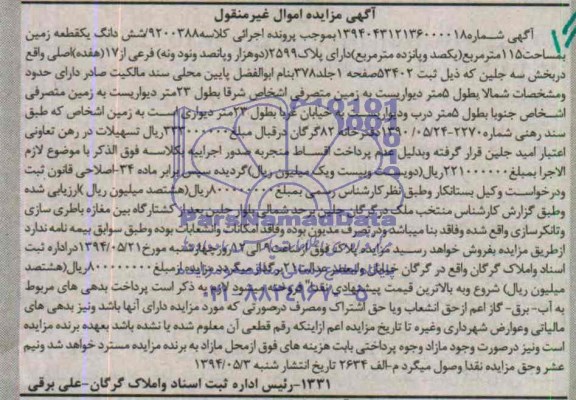 آگهی مزایده اموال غیرمنقول
آگهی شماره۱۳۹۴۰۴۳۱۲۱۳۶۰۰۰۰۱۸بموجب پرونده اجرائی کلاسه۹۲۰۰۳۸۸/شش دانگ یکقطعه زمین
بمساحت۱۱۵مترمربع(یکصد وپانزده مترمربع)بدارای پلاک۲۵۹۹(دوهزار وپانصد ونود ونه) فرعی از۱۷(هفده)اصلی واقع
دربخش سه جلین که ذیل ثبت ۵۳۴۰۲صفحه ۱جلد۳۷۸بنام ابوالفضل پایین محلی سند مالکیت صادر دارای حدود
ومشخصات شمالا بطول ۵متر دیواریست به زمین متصرفی اشخاص شرقا بطول ۲۳متر دیواریست به زمین متصرفی
اشخاص جنوبا بطول ۵متر درب ودیواریست به خیابان غربا بطول ۲۳متر دیواری است به زمین اشخاص که طبق
سند رهنی شماره۲۲۷۰-۱۳۹۰/۰۵/۲۴دفترخانه ۸۲گرگان درقبال مبلغ ریال تسهیلات در رهن تعاونی
اعتبار امید جلین قرار گرفته وبدلیل عدم پرداخت اقساط منجربه صدور اجراییه بکلاسه فوق الذکر با موضوع لازم
الاجرا بمبلغ۲۲۱۰۰۰۰۰۰ریال(دویست وبیست ویک میلیون ریال)گردیده سپس برابر ماده ۳۴-اصلاحی قانون ثبت
ودرخواست وکیل بستانکار وطبق نظر کارشناس رسمی بمبلغ۸۰۰۰۰۰۰۰۰ریال(هشتصد میلیون ریال )ارزیابی شده
وطبق گزارش کارشناس منتخب ملک درگرگان جلین واحد شمالی بلوار جلین بعداز کشتارگاه بین مغازه باطری سازی
وتانکرسازی واقع شده وفاقد بنا میباشد ودرتصرف مدیون بوده وفاقد امکانات وانشعابات بوده وطبق سوابق بیمه نامه ندارد
ازطریق مزایده بفروش خواهد رسید مزایده پلاک فوق ازساعت۹الی ۱۲روزچهارشنبه مورخ۱۳۹۴/۰۵/۲۱دراداره ثبت
اسناد واملاک گرگان واقع در گرگان خیابان ولیعصر عدالت۲۱برگذار میگردد مزایده از مبلغ ۸۰۰۰۰۰۰۰۰ریال(هشتصد
میلیون ریال) شروع وبه بالاترین قیمت پیشنهادی نقدا فروخته میشود لازم به ذکر است پرداخت بدهی های مربوط
به آب-برق- گاز اعم ازحق انشعاب ویا حق اشتراک ومصرف درصورتی که مورد مزایده دارای آنها باشد ونیز بدهی های
مالیاتی وعوارض شهرداری وغیره تا تاریخ مزایده اعم ازاینکه رقم قطعی آن معلوم شده یا نشده باشد بعهده برنده مزایده
است ونیز درصورت وجود مازاد وجوه پرداختی بابت هزینه های فوق ازمحل مازاد به برنده مزایده مسترد خواهد شد ونیم
عشر وحق مزایده نقدا وصول میگردد م-الف ۲۶۳۴ تاریخ انتشار شنبه ۱۳۹۴/۰۵/۳
۱۳۳۱-رئیس اداره ثبت اسناد واملاک گرگان-علی برقی
ParsNamadData
۰۲۱-۸۸۳۴۹۶۷۰-۵